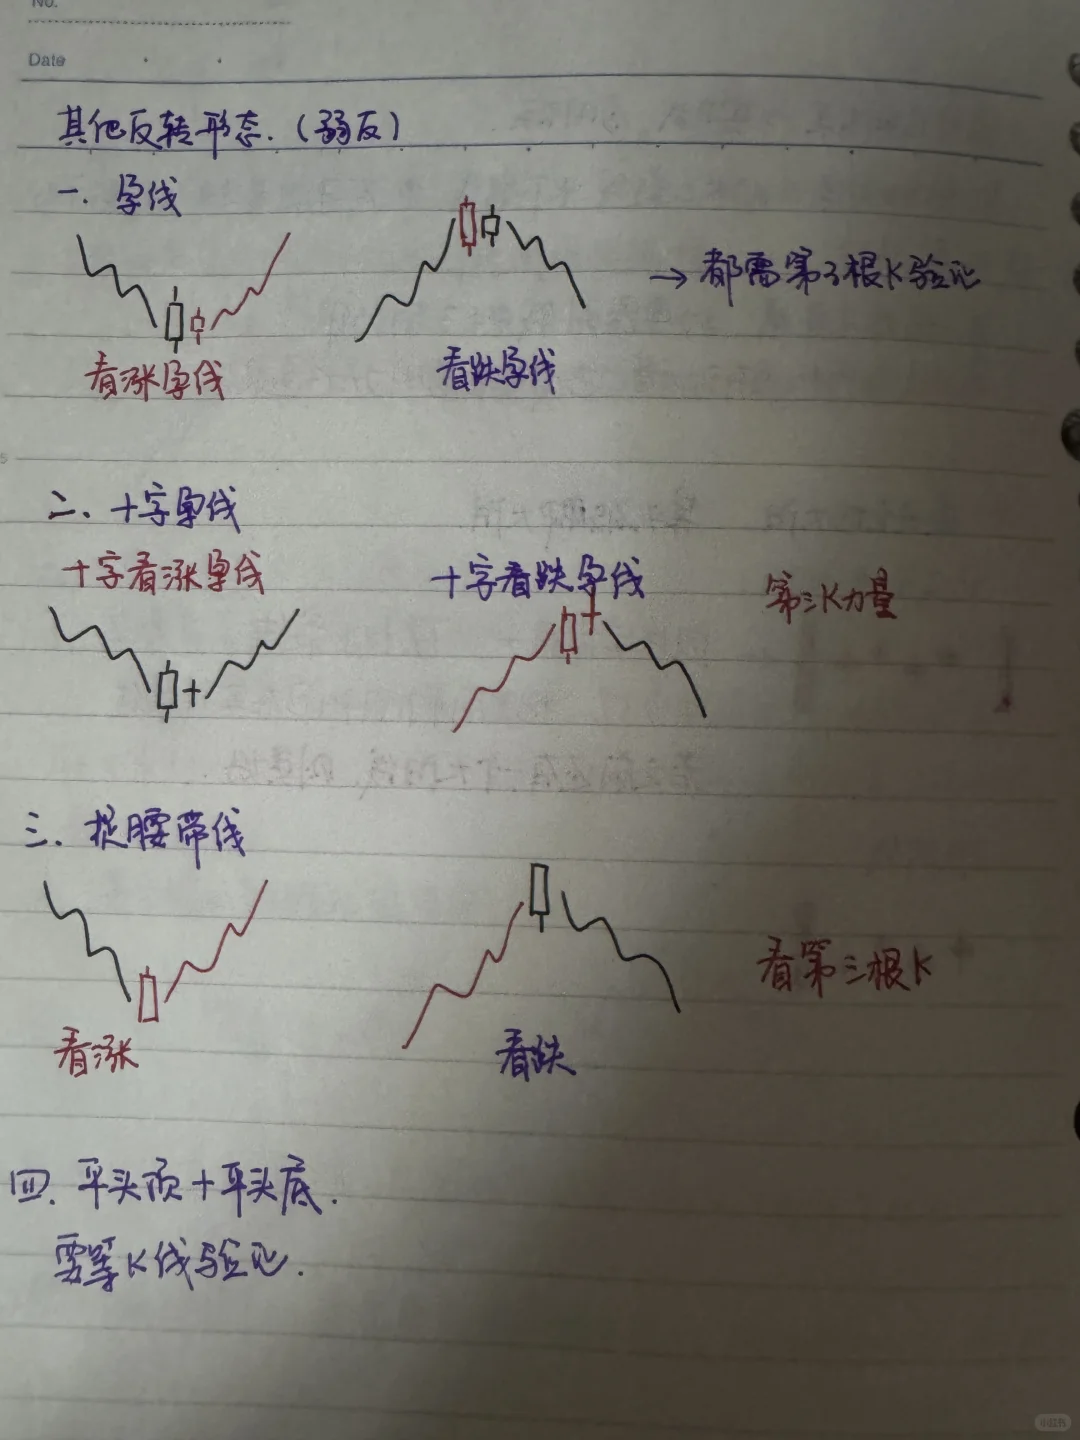 No.
Date
其他反转形态.（弱反）
一. 孕线
→ 都需第3根K验证
看涨孕线
看跌孕线
二、十字孕线
十字看涨孕线
十字看跌孕线
第三K力量
三. 捉腰带线
看第三根K
看涨
看跌
四. 平头顶+平头底.
需等K线验证.
小红书